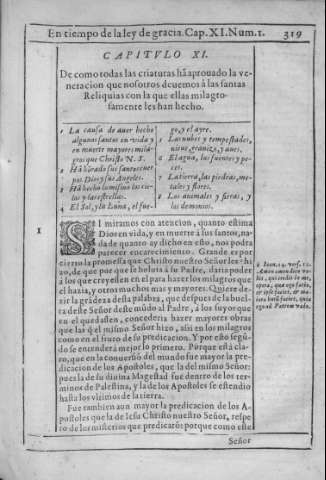 En tiempo de la ley de gracia. Cap. XI. Num. 1. 319
CAPITVLO XI.
De como todas las criaturas hã aprouado la ve-
neracion que nosotros deuemos à las santas
Reliquias con la que ellas milagro-
samente les han hecho.
1 La causa de auer hecho
algunas santas en vida y
en muerte mayores mila-
gros que Christo N. S.
2 Hã hõrado sus santos cuer-
pos Dios y sus Angeles.
3 Hã hecho lo mismo los cie-
los y las estrellas.
4 El Sol, y la Luna, el fue-
go, y el ayre.
5 Las nubes y tempestades,
nieue, granizo, y aues.
6 El agua, las fuentes y pe-
ces.
7 La tierra, las piedras, me-
tales y flores.
8 Los animales y fieras, y
los demonios.
1
SI miramos con atencion, quanto estima
Dios en vida, y en muerte à sus santos, na-
da de quanto ay dicho en esto, nos podra
parecer encarecimiento. Grande es por
cierto la promessa que Christo nuestro Señor les hi-
zo, de que por que se boluia à su Padre, daria poder
à los que creyessen en el para hazer los milagros que
el hazia, y otros muchos mas y mayores. Quiere de-
zir la grãdeza desta palabra, que despues de la buel-
ta deste Señor deste mũdo al Padre, à los suyos que
en el quedassen, concederia hazer mayores obras
que las q̃ el mismo Señor hizo, assi en los milagros
como en el fruto de su predicacion. Y por esto segũ-
do se entenderà mejor lo primero. Porque està cla-
ro, que en la conuersiõ del mundo fue mayor la pre-
dicacion de los Apostoles, que la del mismo Señor:
pues la de su diuina Magestad fue dentro de los ter-
minos de Palestina, y la de los Apostoles se estendio
hasta los vltimos de la tierra.
Fue tambien aun mayor la predicacion de los A-
postoles que la de Iesu Christo nuestro Señor, respe-
to de los misterios que predicarõ: porque como este
Señor
Ioan. 14. vers. 12.
Amen amen dico vo-
bis, qui credit in me,
opera, quæ ego facio,
et ipse faciet, et ma-
iora horũ faciet, quia
ego ad Patrem vado.